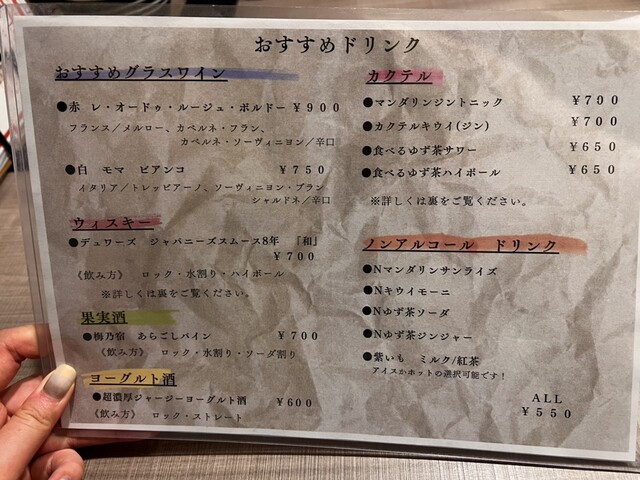 おすすめドリンク
おすすめグラスワイン
●赤 レ・オードゥ・ルージュ・ボルドー ¥900
フランス/メルロー、カベルネ・フラン、
カベルネ・ソーヴィニヨン/辛口
●白 モマ ビアンコ ¥750
イタリア/トレッビアーノ、ソーヴィニヨン・ブラン
シャルドネ/辛口
ウィスキー
●デュワーズ ジャパニーズスムース8年 「和」
¥700
《飲み方》 ロック・水割り・ハイボール
※詳しくは裏をご覧ください。
果実酒
●梅乃宿 あらごしパイン ¥700
《飲み方》 ロック・水割り・ソーダ割り
ヨーグルト酒
●超濃厚ジャージーヨーグルト酒 ¥600
《飲み方》 ロック・ストレート
カクテル
●マンダリンジントニック ¥700
●カクテルキウイ(ジン) ¥700
●食べるゆず茶サワー ¥650
●食べるゆず茶ハイボール ¥650
※詳しくは裏をご覧ください。
ノンアルコール ドリンク
●Nマンダリンサンライズ
●Nキウイモーニ
●Nゆず茶ソーダ
●Nゆず茶ジンジャー
●紫いも ミルク/紅茶
アイスかホットの選択可能です!
ALL
¥550